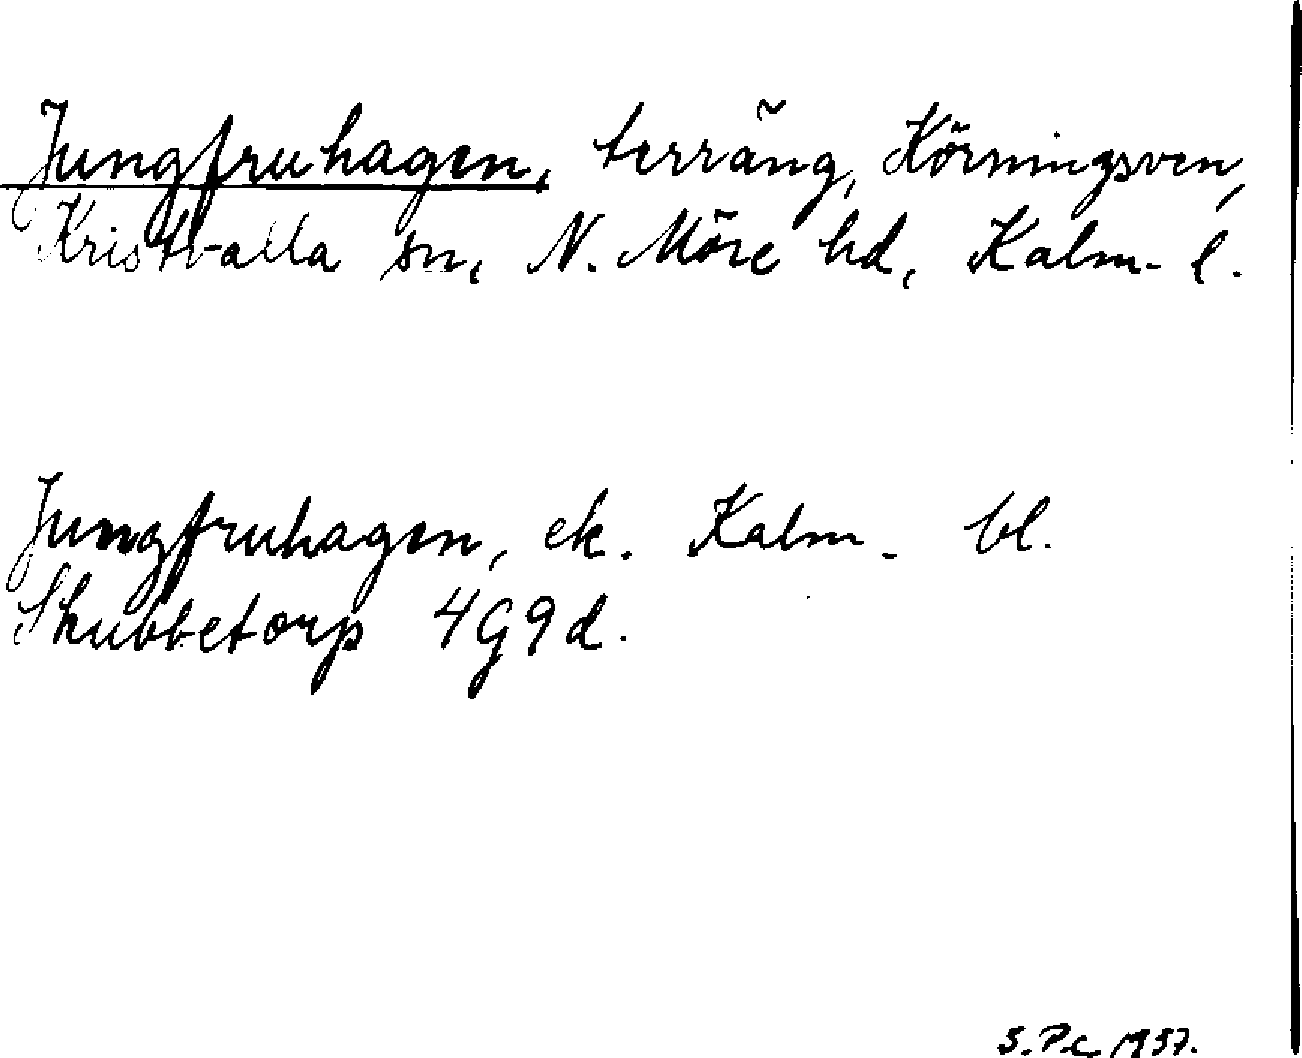 Jungfruhagen, terräng, Körningsven,
Kristvalla sn, N. Möre hd, Kalm. l.
Jungfruhagen, ek. Kalm. bl.
Skubbetorp 4G9d.
S.P.C. 1957.